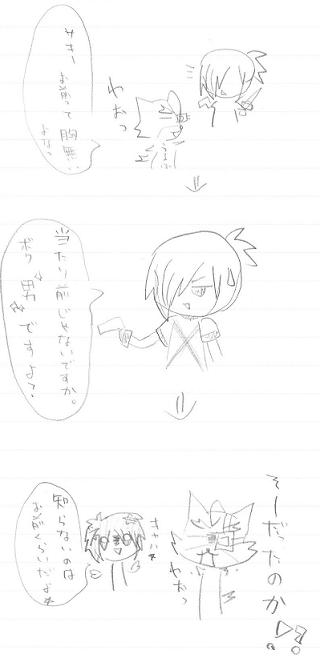 サキー
お前って胸無い
よなっ
わおっ
うるふ
当たり前じゃないですか。
ボク男ですよ?
そーだったのか!
わおっ
キャハ☆
知らないのは
お前くらいだよ☆